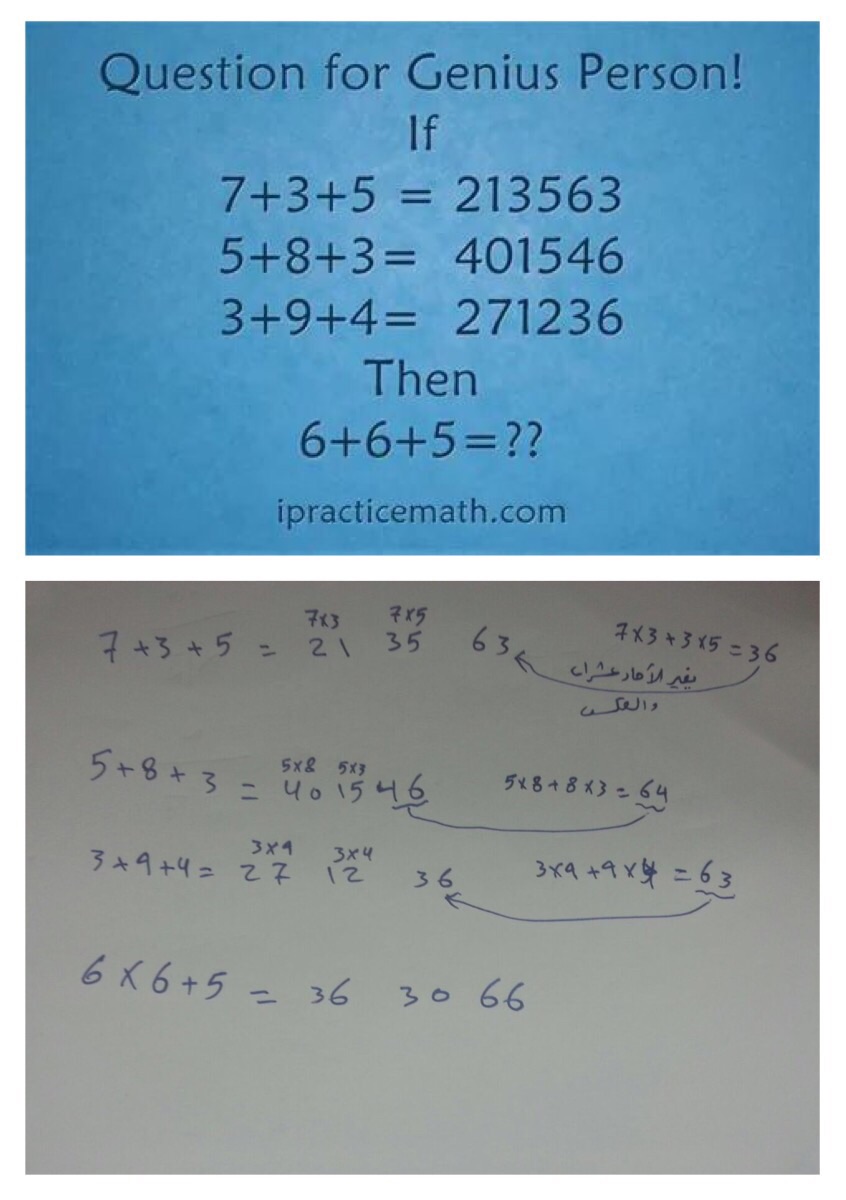 Question for Genius Person!
If
7+3+5 = 213563
5+8+3= 401546
3+9+4= 271236
Then
6+6+5=??
ipracticemath.com
7x3 7x5
7+3+5 = 21 35 63 7x3+3x5=36
يغير الأحاد عشرات
والعكس
5x8 5x3
5+8+3 = 40 15 46 5x8+8x3=64
3x9 3x4
3+9+4= 27 12 36 3x9+9x4=63
6x6+5 = 36 30 66